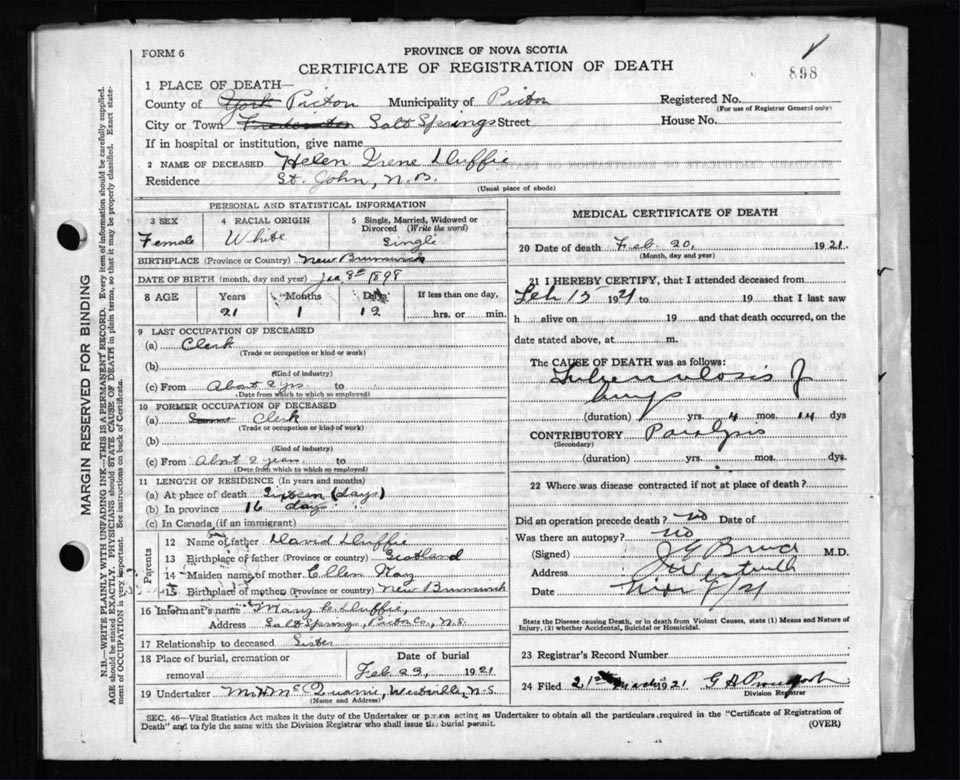 FORM 6
PROVINCE OF NOVA SCOTIA
CERTIFICATE OF REGISTRATION OF DEATH
898
1 PLACE OF DEATH—
County of York Pictou Municipality of Pictou Registered No.
(For use of Registrar General only)
City or Town Fredericton Salt Springs Street House No.
If in hospital or institution, give name
2 NAME OF DECEASED Helen Irene Duffie
Residence St. John, N.B.
(Usual place of abode)
PERSONAL AND STATISTICAL INFORMATION
3 SEX 4 RACIAL ORIGIN 5 Single, Married, Widowed or Divorced (Write the word)
Female White Single
BIRTHPLACE (Province or Country) New Brunswick
DATE OF BIRTH (month, day and year) Jan 8th 1898
8 AGE Years Months Days If less than one day,
21 1 12 hrs. or min.
9 LAST OCCUPATION OF DECEASED
(a) Clerk
(Trade or occupation or kind or work)
(b)
(Kind of industry)
(c) From About 2 yrs to
(Date from which to which so employed)
10 FORMER OCCUPATION OF DECEASED
(a) Same Clerk
(Trade or occupation or kind of work)
(b)
(Kind of industry)
(c) From About 2 years to
(Date from which to which so employed)
11 LENGTH OF RESIDENCE (In years and months)
(a) At place of death Sixteen (days)
(b) In province 16 days
(c) In Canada (if an immigrant)
Parents
12 Name of father David Duffie
13 Birthplace of father (Province or country) Scotland
14 Maiden name of mother Ellen
15 Birthplace of mother (Province or country) New Brunswick
16 Informant's name Mary Duffie,
Address Salt Springs, Pictou Co., N.S.
17 Relationship to deceased Sister
18 Place of burial, cremation or removal Date of burial
Feb 23, 1921
19 Undertaker Westville, N.S.
(Name and Address)
MEDICAL CERTIFICATE OF DEATH
20 Date of death Feb. 20, 1921.
(Month, day and year)
21 I HEREBY CERTIFY, that I attended deceased from
Feb 15 1921 to 19 that I last saw
h alive on 19 and that death occurred, on the
date stated above, at m.
The CAUSE OF DEATH was as follows:
Tuberculosis of
Lungs
(duration) yrs. 4 mos. 14 dys
CONTRIBUTORY Paralysis
(Secondary)
(duration) yrs. mos. dys.
22 Where was disease contracted if not at place of death?
Did an operation precede death? no Date of
Was there an autopsy? no
(Signed) M.D.
Address Westville
Date
State the Disease causing Death, or in death from Violent Causes, state (1) Means and Nature of
Injury, (2) whether Accidental, Suicidal or Homicidal.
23 Registrar's Record Number
24 Filed 21st March 1921
Division Registrar
SEC. 46—Vital Statistics Act makes it the duty of the Undertaker or person acting as Undertaker to obtain all the particulars required in the "Certificate of Registration of
Death" and to fyle the same with the Division Registrar who shall issue the burial permit. (OVER)
MARGIN RESERVED FOR BINDING
N.B.—WRITE PLAINLY WITH UNFADING INK—THIS IS A PERMANENT RECORD. Every item of information should be carefully supplied.
AGE should be stated EXACTLY. PHYSICIANS should STATE CAUSE OF DEATH in plain terms, so that it may be properly classified. Exact statement of OCCUPATION is very important. See instructions on back of Certificate.